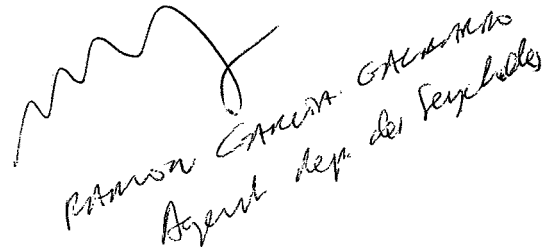 RAMON GARCIA GALLARDO
Agent dep. des Seychelles